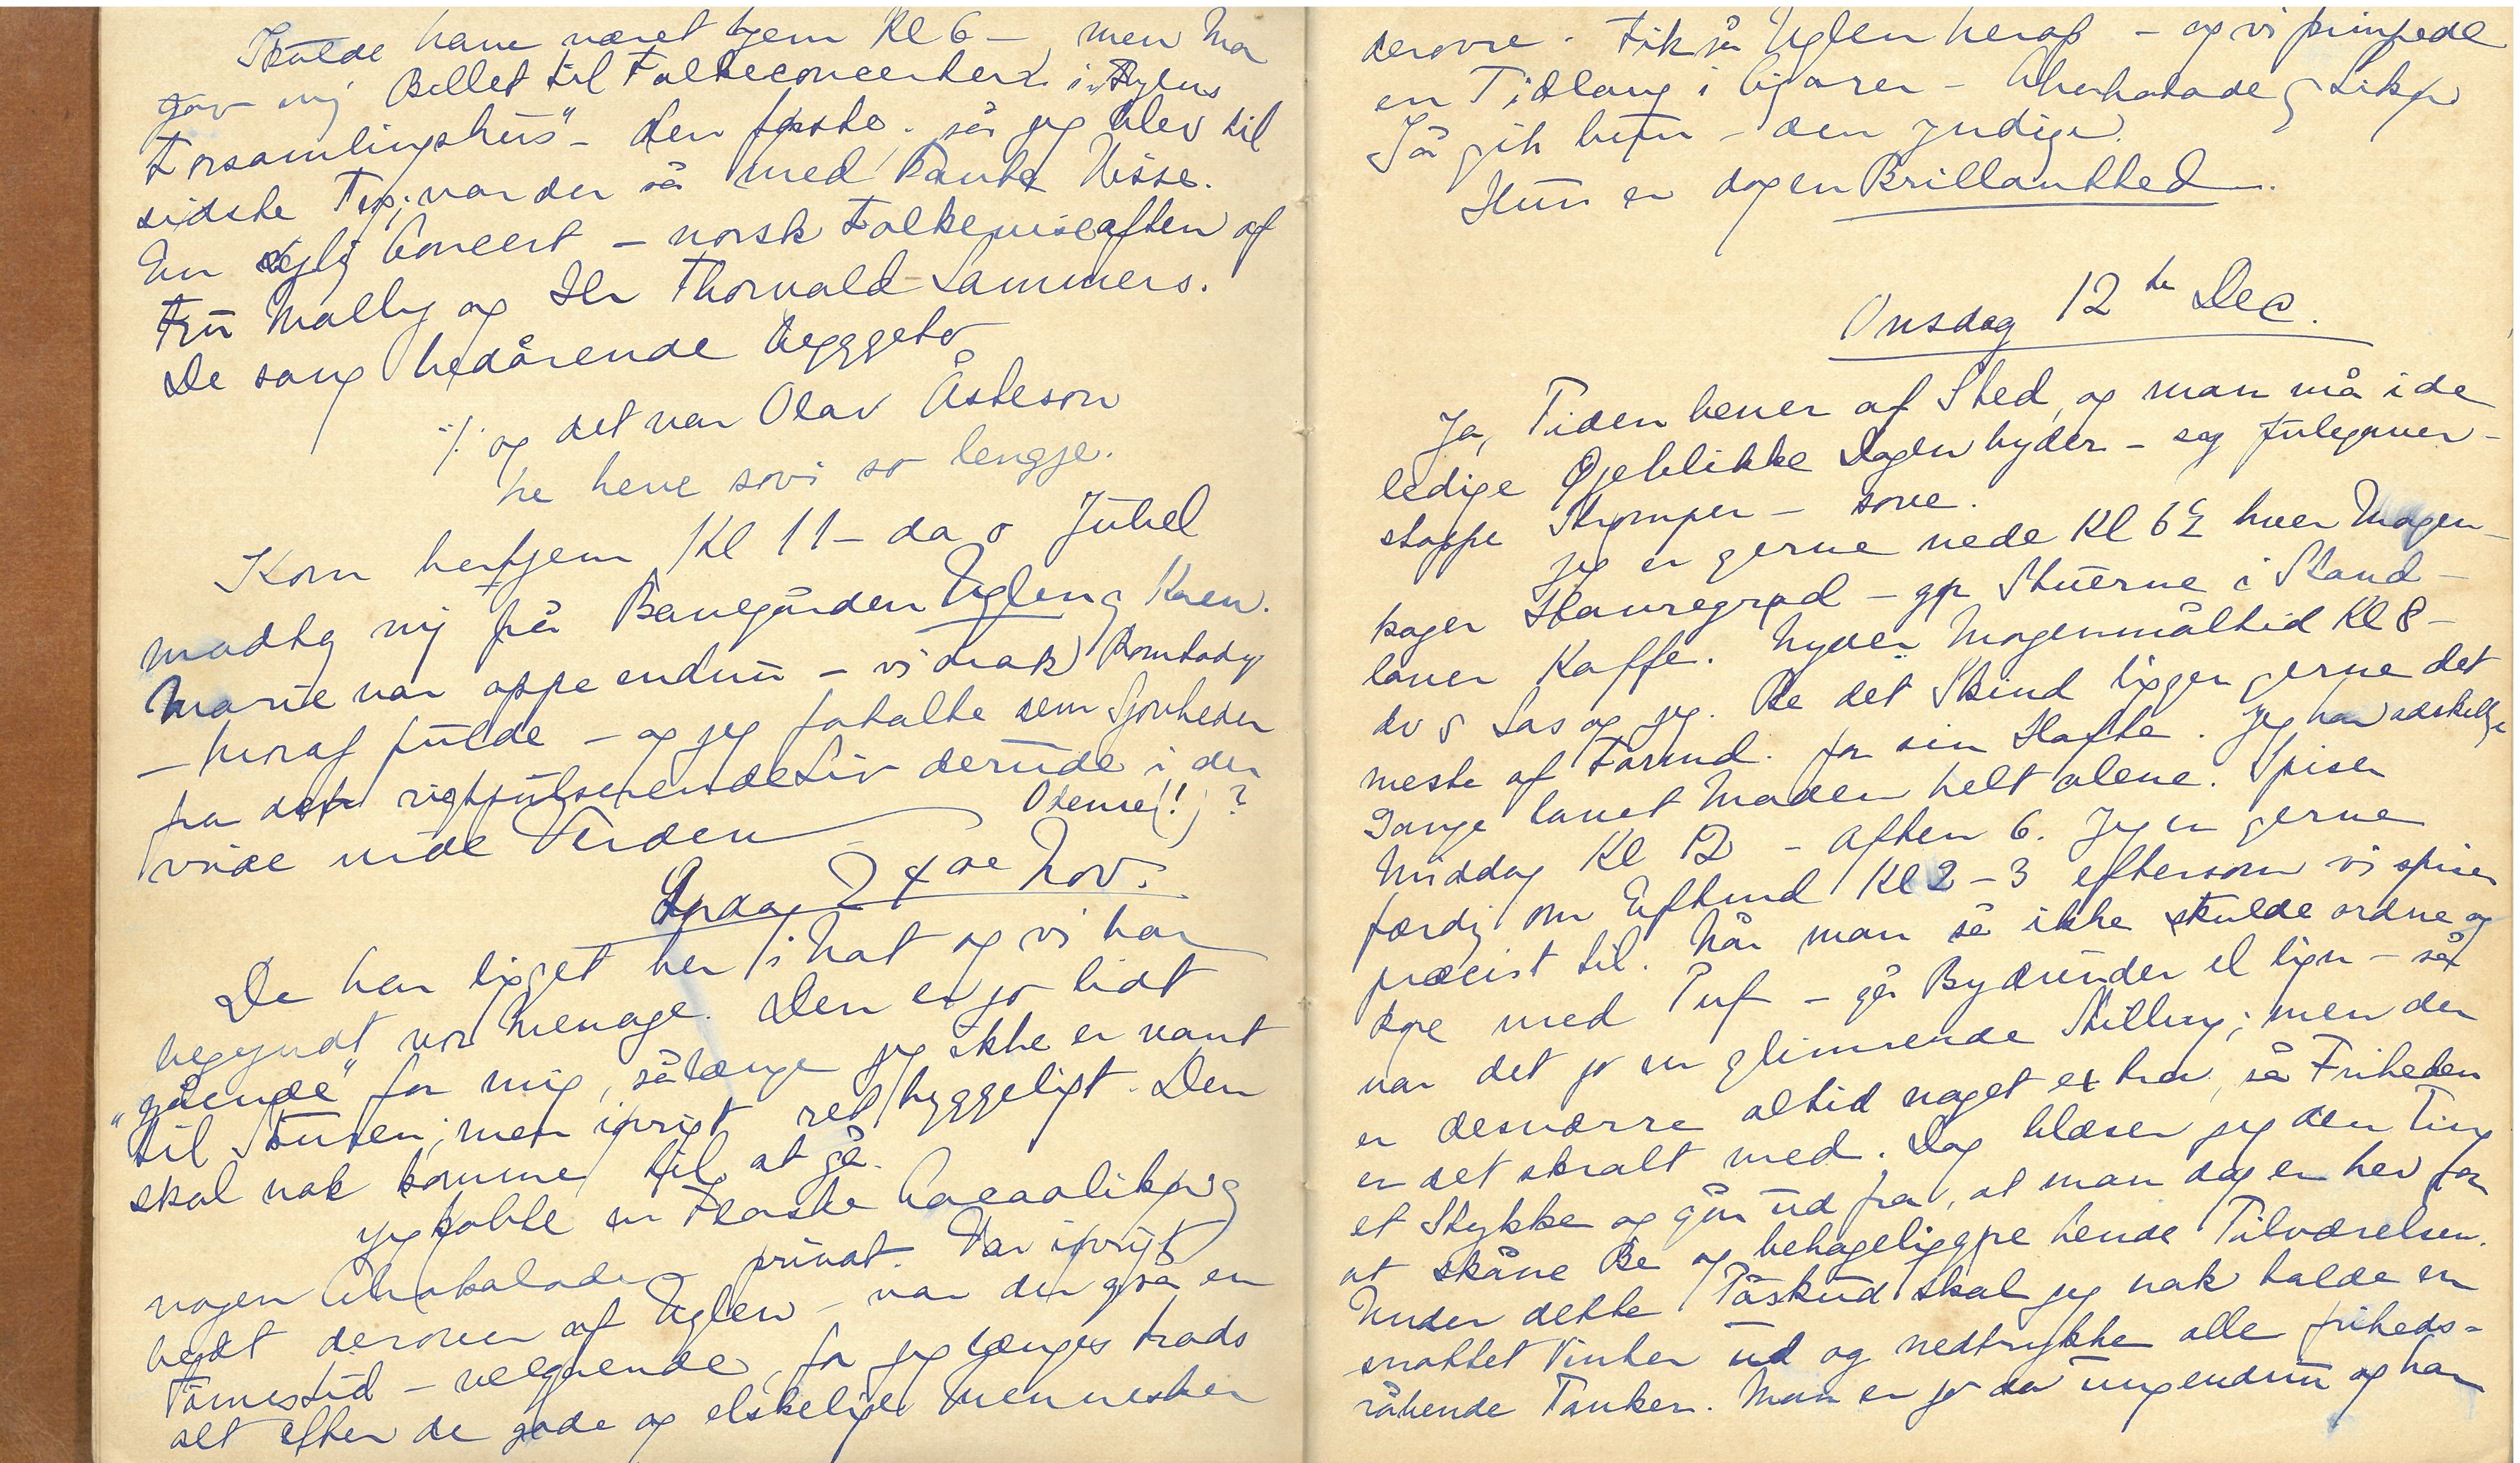 Skulde have været hjem Kl 6 – men Ma
gav mig Billet til Folkeconcerten i "Fyens
Forsamlingshus" – den første. så jeg blev til
sidste Tog; var der så med Tante Visse.
En dejlig Concert – norsk Folkeviseaften af
Fru Mally og Hr Thorvald Lammers.
De sang bedårende beggeto
·/· og det var Olav Åsteson
he heve sovi so lengje.
Kom herhjem Kl 11 – da o Jubel
mødte mig på Banegården Uglen og Karen.
Marie var oppe endnu – vi drak Romtody
– hvoraf fulde – og jeg fortalte sem Sjovheder
fra det rigtpulserende Liv derude i den
vide vide Verden Odense (!) ?
Lørdag 24de Nov.
De har ligget her i Nat og vi har
begyndt vor Menage. Den er jo lidt
"gående" for mig, sålænge jeg ikke er vant
til Stuten; men ivrigt ret hyggeligt. Den
skal nok komme til at gå.
Jeg købte en Flaske Cacaolikør og
nogen Chokolade privat. Var ivrigt
bedt derover af Uglen – var der også en
Timestid – velgørende, for jeg længes trods
alt efter de gode og elskelige Mennesker
derovre. Fik så Uglen herop – og vi pimpede
en Tidlang i Cigarer – Chokolade og Likør
Så gik hun – den yndige.
Hun er dog en Brillanthed.
Onsdag 12te Dec.
Ja, Tiden hener af Sted, og man må i de
ledige Øjeblikke Dagen byder – sy Julegaver –
stoppe Strømper – sove.
Jeg er gerne nede Kl 6½ hver Morgen –
koger Havregrød – gør Stuerne i Stand –
laver Kaffe. Nyder Morgenmåltid Kl 8 –
dvs Las og jeg. Be det Skind ligger gerne det
meste af Formd. for sin Hofte. Jeg har adskellige
Gange lavet Maden helt alene. Spiser
Middag Kl 12 – Aften 6. Jeg er gerne
færdig om Eftmd Kl 2 – 3 eftersom vi spiser
præcist til. Når man så ikke skulde ordne og
køre med Puf – gå Byærinder el lign – så
var det jo en glimrende Stilling; men der
er desværre altid noget extra, så Friheden
er det skralt med. Dog blæser jeg den Ting
et Stykke og går ud fra, at man dog er her for
at skåne Be og behageliggøre hende Tilværelsen.
Under dette Påskud skal jeg nok holde en
snottet Vinter ud og nedtrykke alle friheds-
råbende Tanker. Man er jo da ung endnu og har